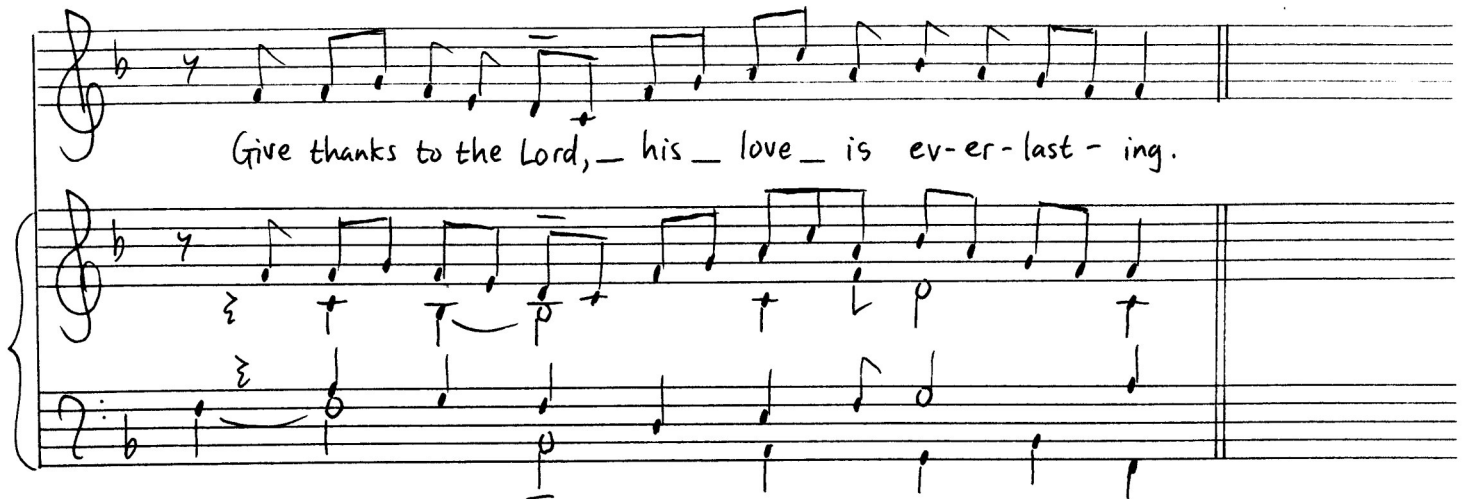 Give thanks to the Lord,_ his_ love_ is ev-er-last-ing.